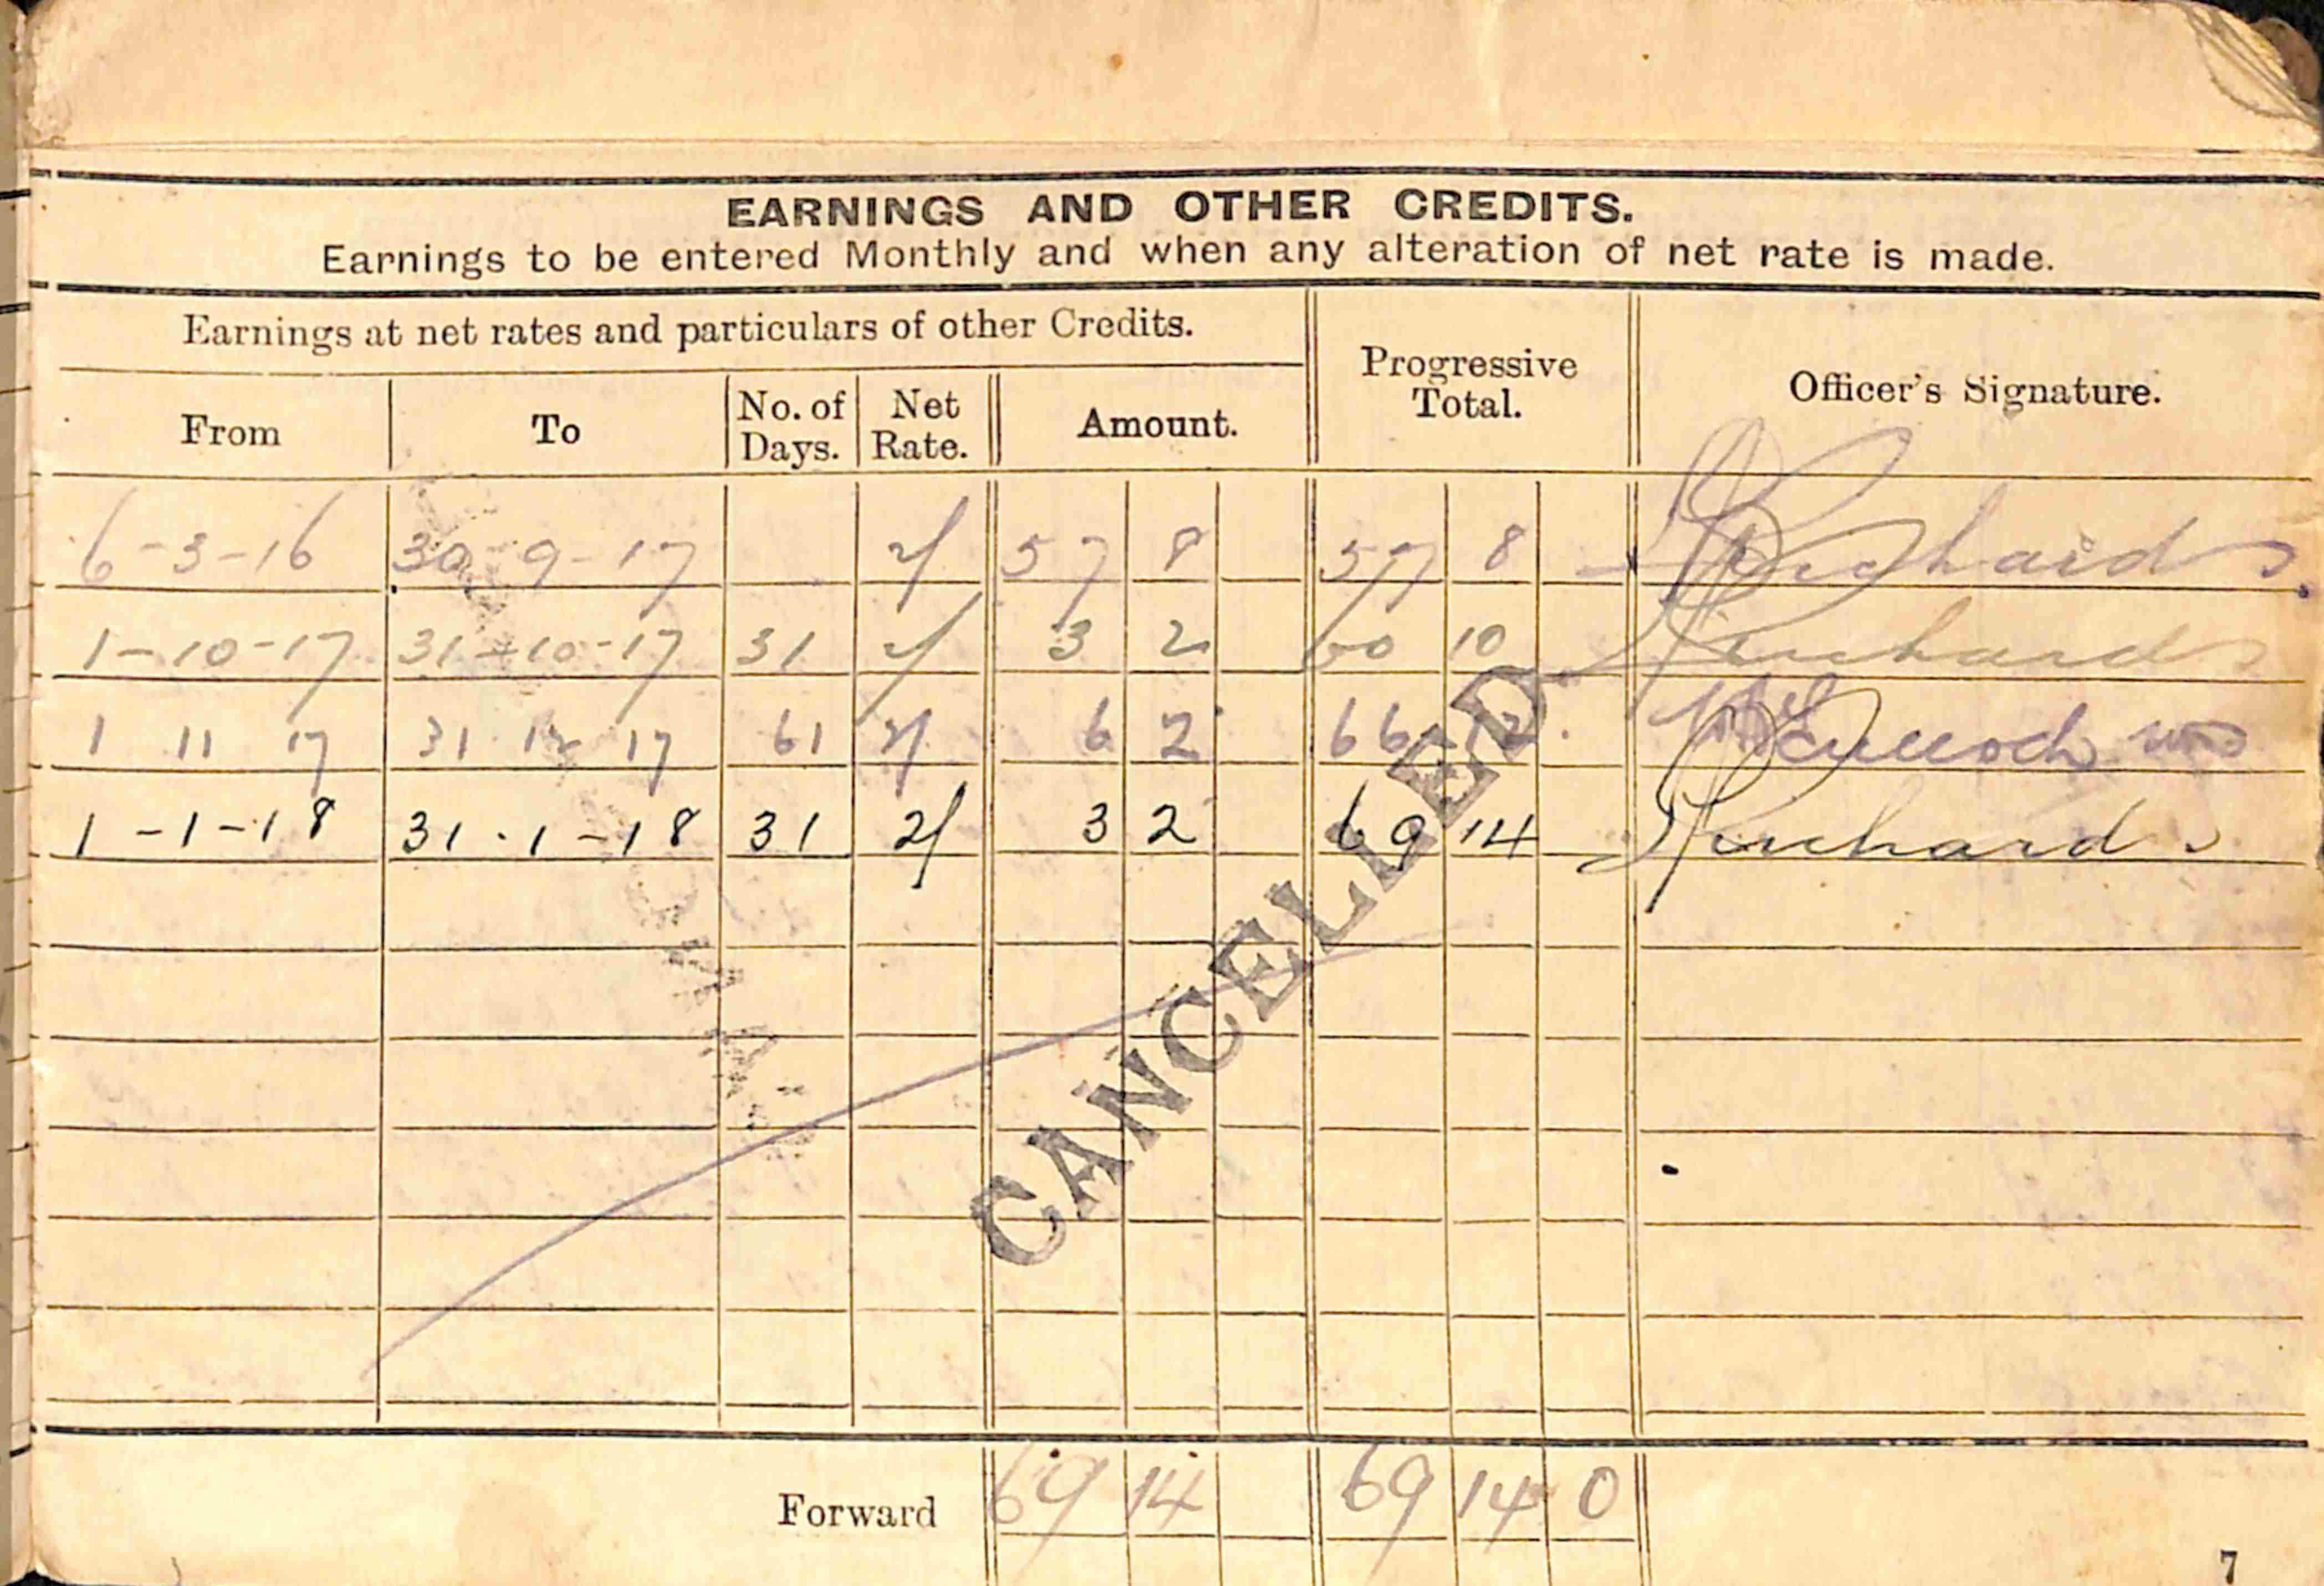 EARNINGS AND OTHER CREDITS.
Earnings to be entered Monthly and when any alteration of net rate is made.
Earnings at net rates and particulars of other Credits.
Progressive Total.
Officer's Signature.
From To No. of Days. Net Rate. Amount.
6-3-16 30-9-17 2/ 57 8 57 8
1-10-17 31-10-17 31 2/ 3 2 60 10
1 11 17 31 12 17 61 2/ 6 2 66 12
1-1-18 31-1-18 31 2/ 3 2 69 14
CANCELLED
Forward 69 14 69 14 0
7